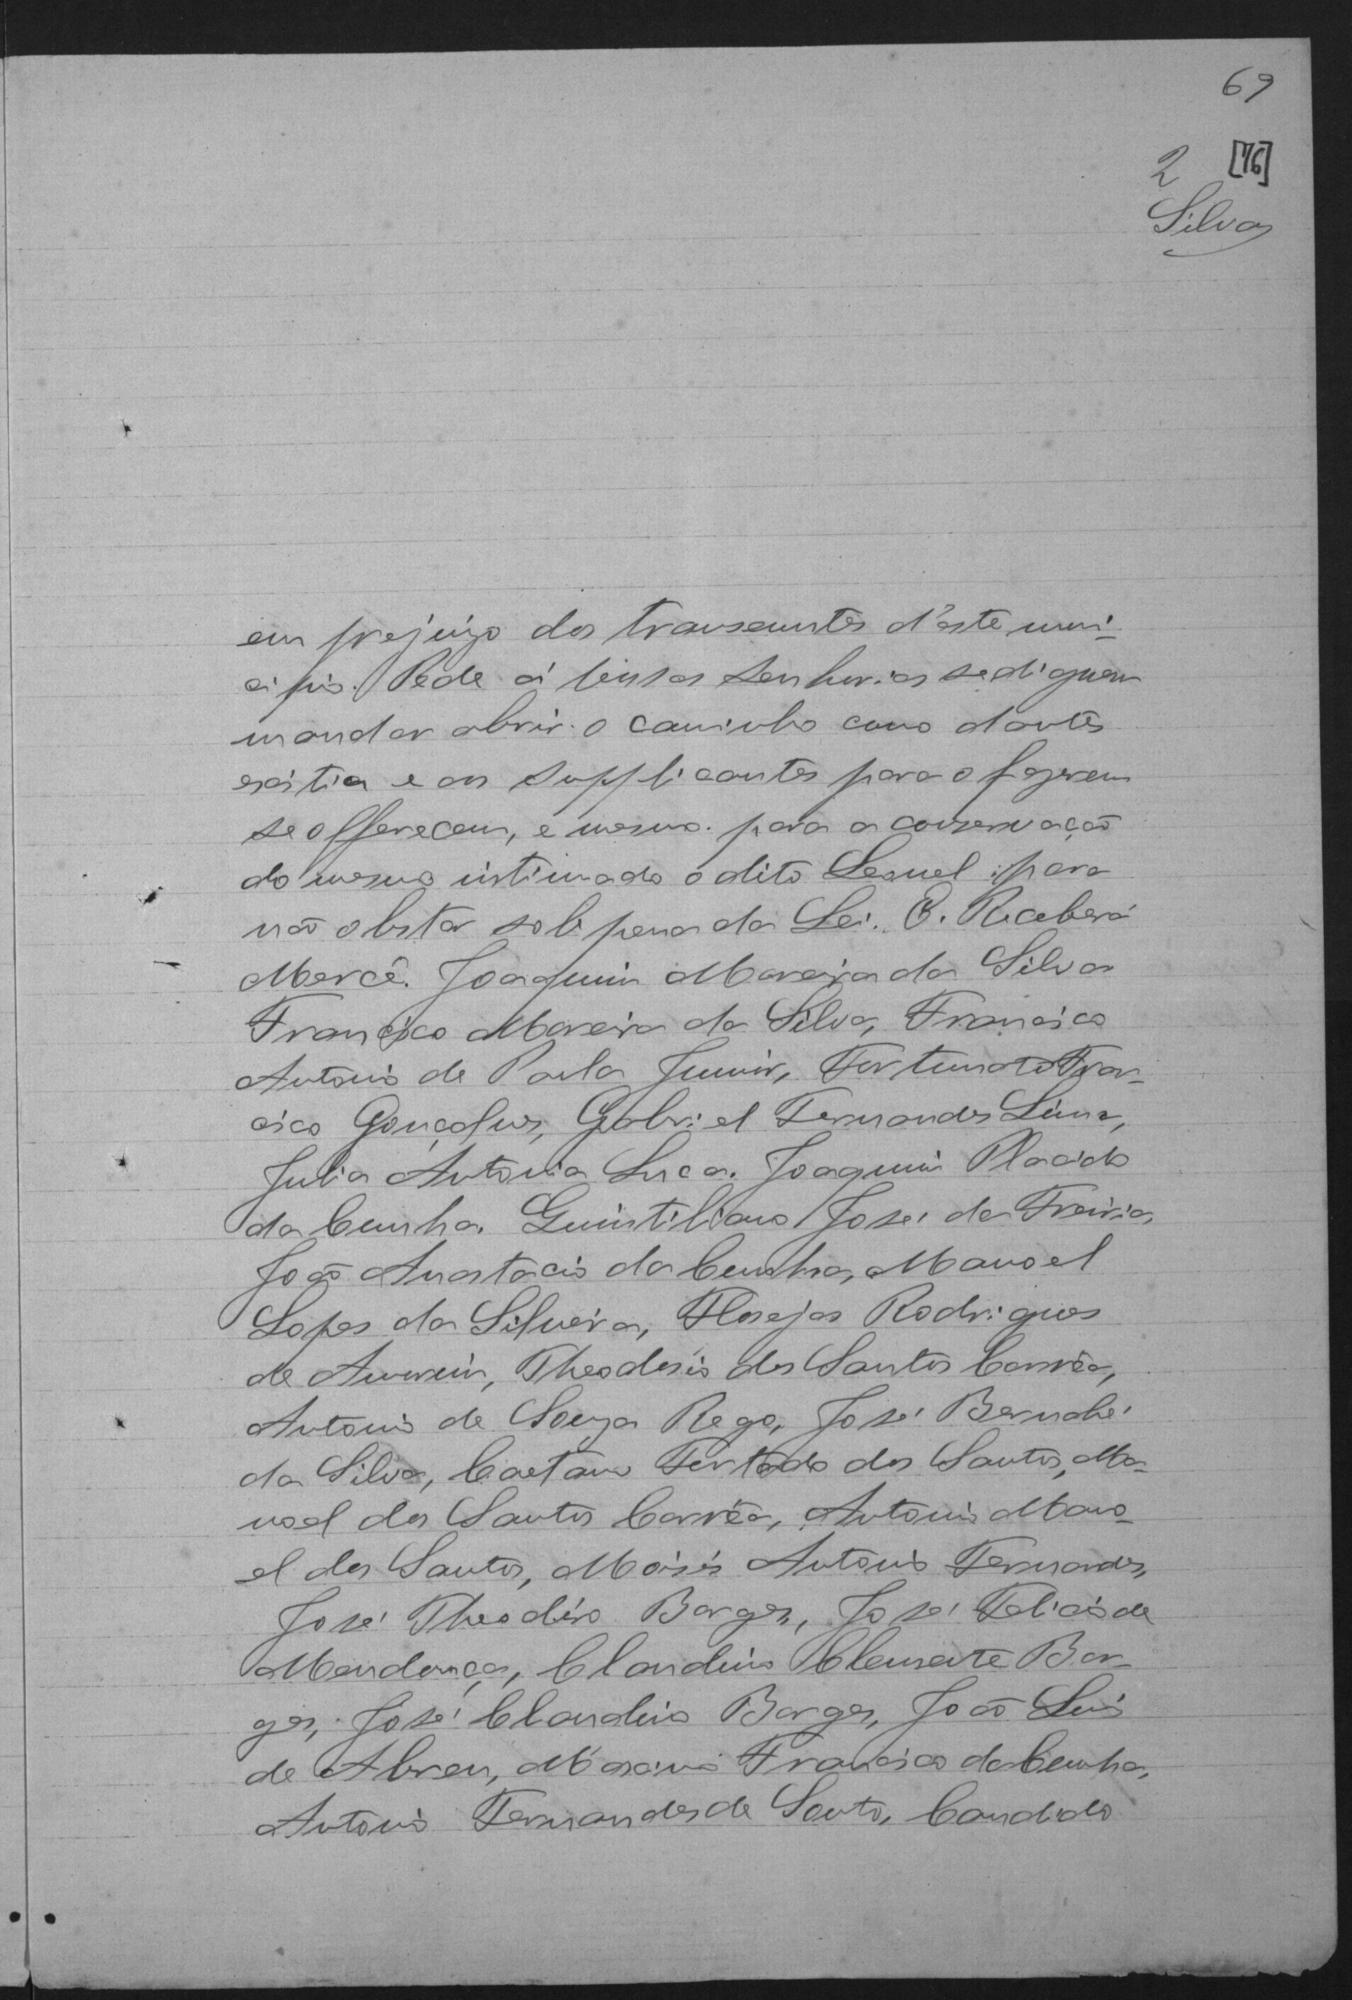 69
2 [76]
Silva
em prejuizo dos transeuntes d'este muni-
cipio. Pede á vossas Senhorias se diguem
mandar abrir o caminho como d'antes
existia e os Supplicantes para o fazerem
se offerecem, e mesmo para a conservação
do mesmo intimado o dito Leonel para
não obstar sob pena da Lei. E. Receberá
Mercê. Joaquim Moreira da Silva
Francisco Moreira da Silva, Francisco
Antonio de Paula Junior, Fortunato Fran-
cisco Gonçalves, Gabriel Fernandes Lima,
Julia Antonia Luca. Joaquim Placido
da Cunha. Quintiliano José da Freiria,
João Anastacio da Cunha, Manoel
Lopes da Silveira, Rodrigues
de Amorim, Theodosio dos Santos Corrêa,
Antonio de Souza Rego, José Bernabé
da Silva, Caetano Furtado dos Santos, Ma-
noel dos Santos Corrêa, Antonio Mano-
el dos Santos, Moisés Antonio Fernandes,
José Theodóro Borges, José Felicio de
Mendonça, Claudino Clemente Bor-
ges, José Claudino Borges, João Luis
de Abreu, Maximo Francisco da Cunha,
Antonio Fernandes de Souto, Candido